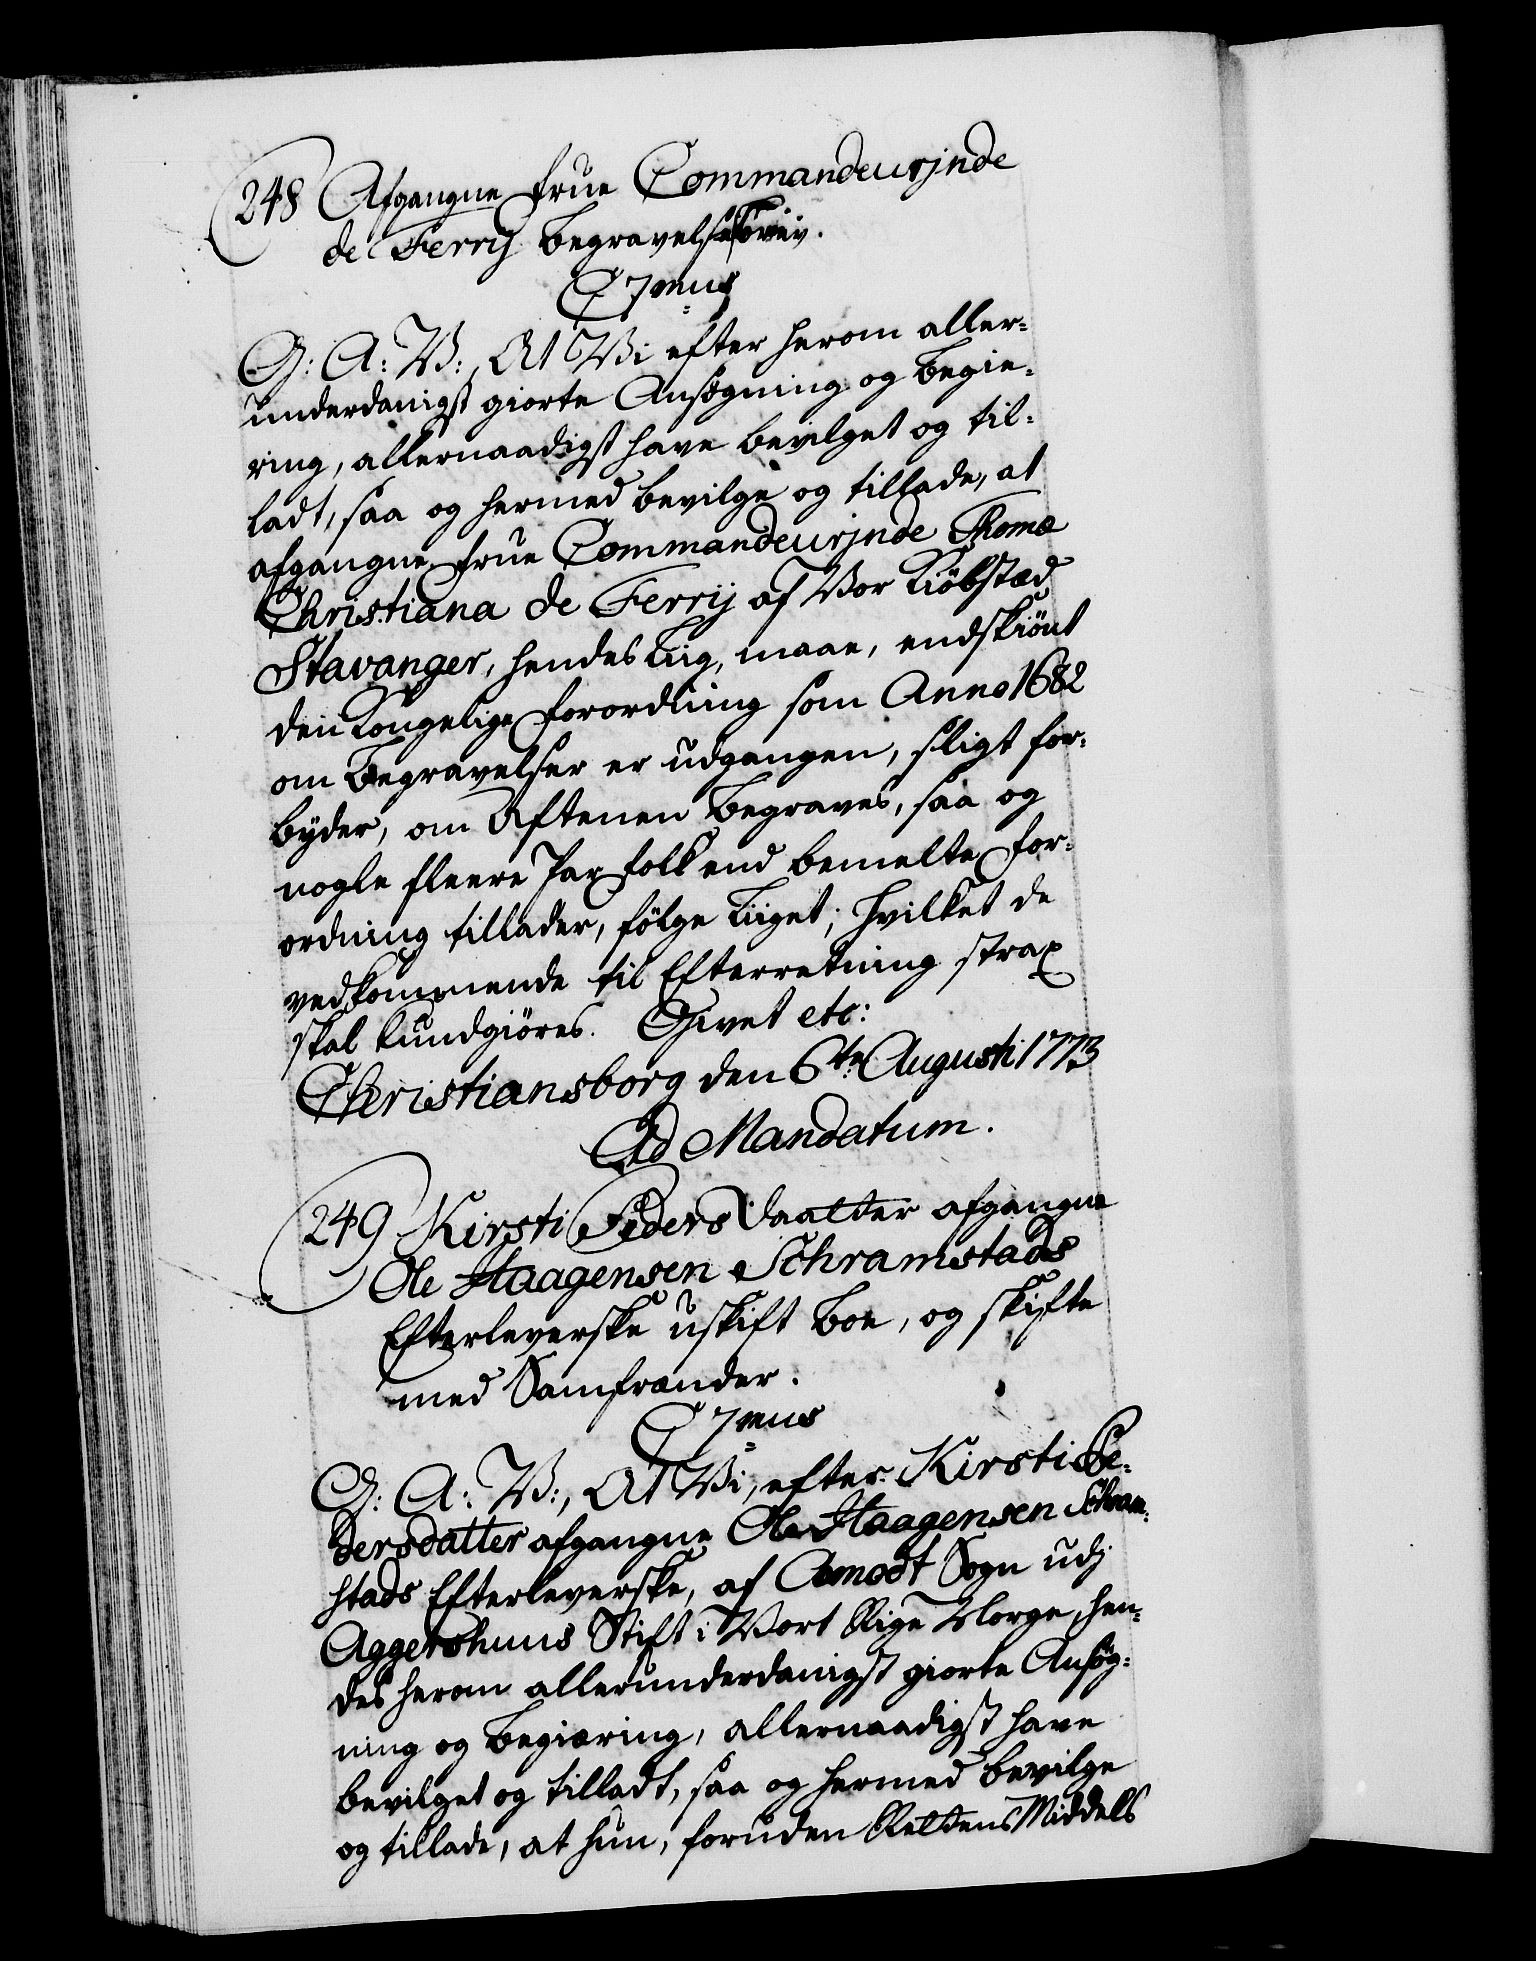 248 Afgangne Frue Commandeurjnde
de Ferrÿ Begravelsebrev.
C 7mus
G: A: V: At Vi efter herom aller-
underdanigst giorte Ansøgning og begie-
ring, allernaadigst have bevilget og til-
ladt, saa og hermed bevilge og tillade, at
afgangne Frue Commandeurjnde Thoma
Christiana de Ferrij af Vor Kiöbstæd
Stavanger, hendes Liig, maae, endskiönt
den Kongelige Forordning som Anno 1682
om Begravelser er udgangen, sligt for-
byder, om Aftenen begraves, saa og
nogle fleere Par Folk end bemelte For-
ordning tillader, fölge Liiget; hvilket de
vedkommende til Efterretning strax
skal kundgiöres. Givet etc:
Christiansborg den 6te Augusti 1773
Ad Mandatum.
249 Kirsti Peders Daatter afgangne
Ole Haagensen Schramstads
Efterleverske uskift Boe, og skifte
med Samfrænder.
C 7mus
G: A: V:, At Vi, efter Kirsti Pe-
dersdatter afgangne Ole Haagensen Schram-
stads Efterleverske, af Amodt Sogn udj
Aggershuus Stift i Vort Rige Norge, hen-
des herom allerunderdanigst giorte Ansøg-
ning og Begiæring, allernaadigst have
bevilget og tilladt, saa og hermed bevilge
og tillade, at hun, foruden Rettens Middels